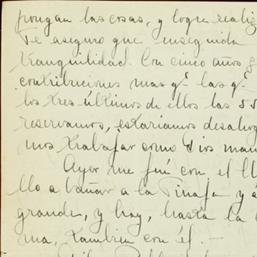 pongan las cosas, y logre realiz
Te aseguro que enseguida
tranquilidad. Con cinco años
contribuciones mas q.e las q.e
los tres últimos de ellos las 55
reservamos, estaríamos desahog
mos trabajar como Dios man
Ayer me fuí con el Ll
llo a bañar a la Pinaja y
grande, y hoy, hasta la
ma, también con él.—